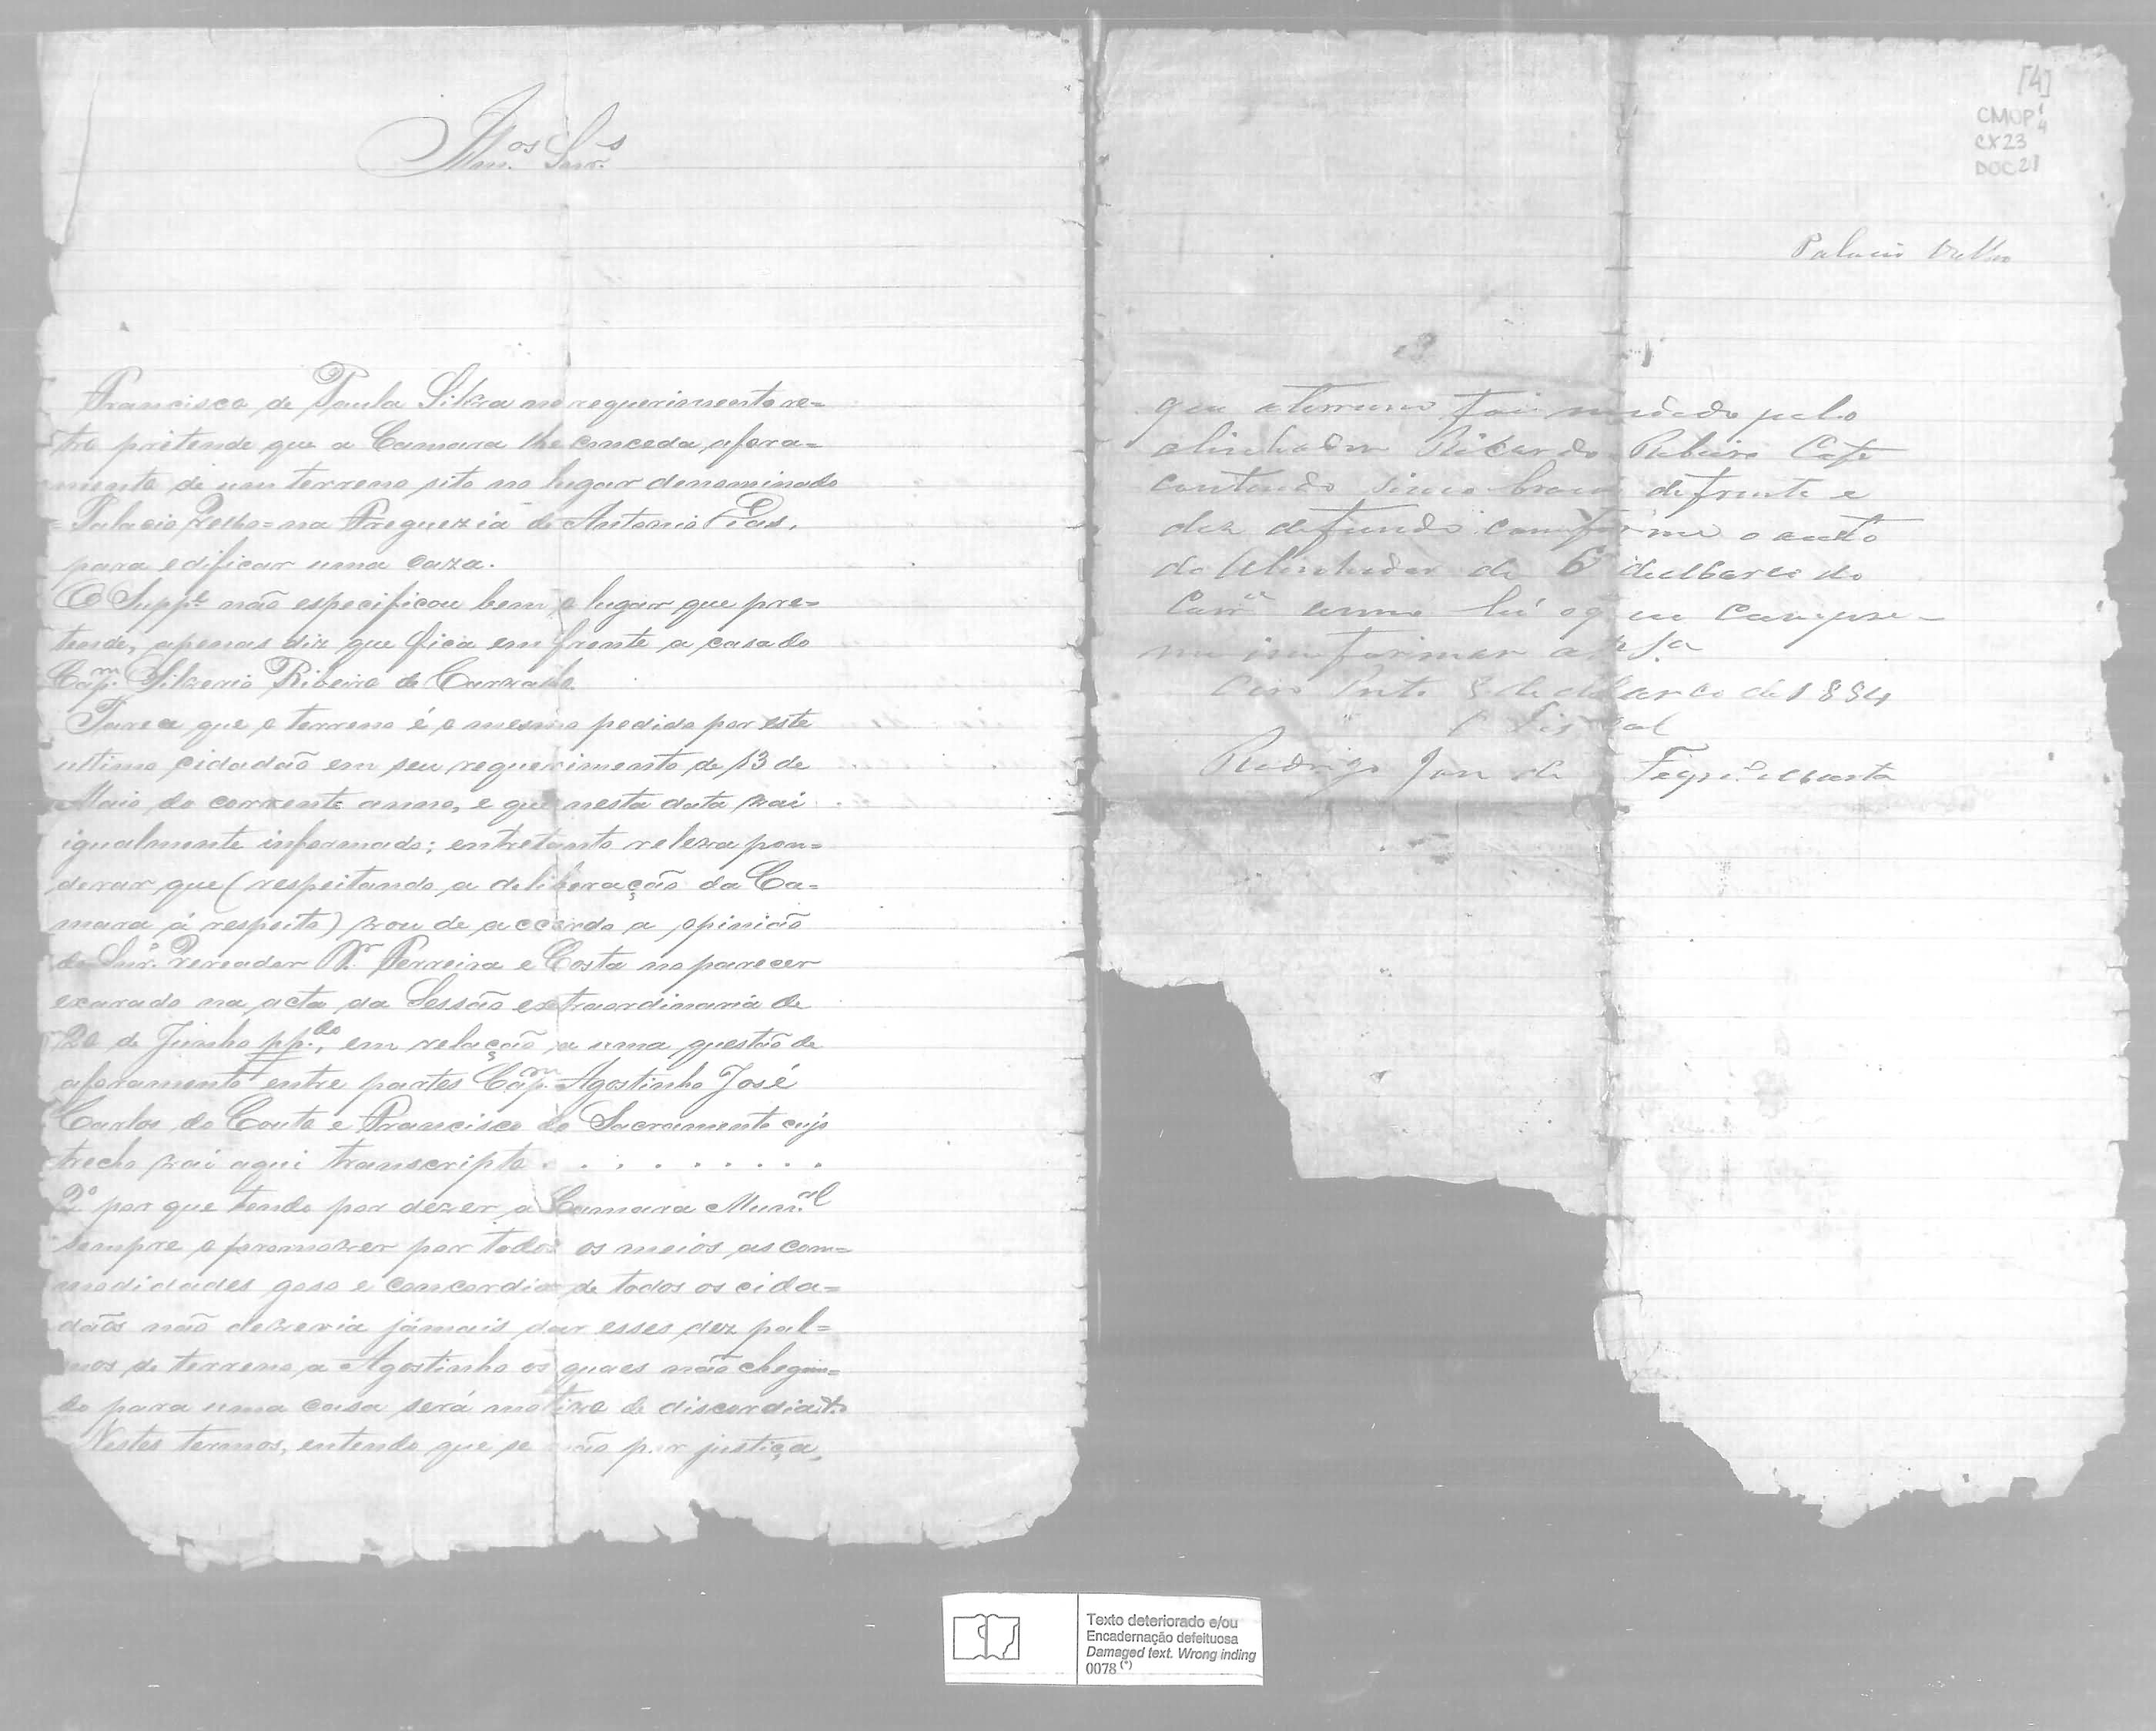 Illm.os Snr.s
Francisco de Paula Silva no requerimento re=
tro pretende que a Camara lhe conceda afora=
mento de um terreno sito no lugar denominado
=Palacio Velho= na Freguezia de Antonio Dias,
para edificar uma caza.
O Supp.e não especificou bem o lugar que pre=
tende, apenas diz que fica em frente a casa do
Cap.m Silverio Ribeiro de Carvalho.
Parece que o terreno é o mesmo pedido por este
ultimo cidadão em seu requerimento de 13 de
Maio do corrente anno, e que nesta data vai
igualmente informado; entretanto releva pon=
derar que (respeitando a deliberação da Ca=
mara á respeito) vou de accordo a opinião
do Snr. Vereador Dr. Ferreira e Costa no parecer
exarado na acta da Sessão extraordinaria de
20 de Junho pp.do, em relação a uma questão de
aforamento entre partes Cap.m Agostinho José
Carlos do Couto e Francisco do Sacramento cujo
trecho vai aqui transcripto . . . . . . . . .
2º por que tendo por dever a Camara Mun.al
sempre o promover por todos os meios as com=
modidades goso e concordia de todos os cida=
dãos não deveria jámais dar esses dez pal=
mos de terreno a Agostinho os quaes não chegan=
do para uma casa será motivo de discordia &.
Nestes termos, entendo que se não por justiça,
[4]
CMOP 1/4
CX23
DOC21
Palacio Velho
que oterreno foi midido pelo
alinhador Ricardo Ribeiro
contendo sinco braças defrente e
dez defundo comforme o auto
do Alinhador de 6 deMarco do
Corr.e anno hé oque cumpre-
me imformar a V. S.a
Ouro Preto 8 deMarco de 1884
O Fiscal
Rodrigo José de Figr.do Murta
Texto deteriorado e/ou
Encadernação defeituosa
Damaged text. Wrong inding
0078 (*)